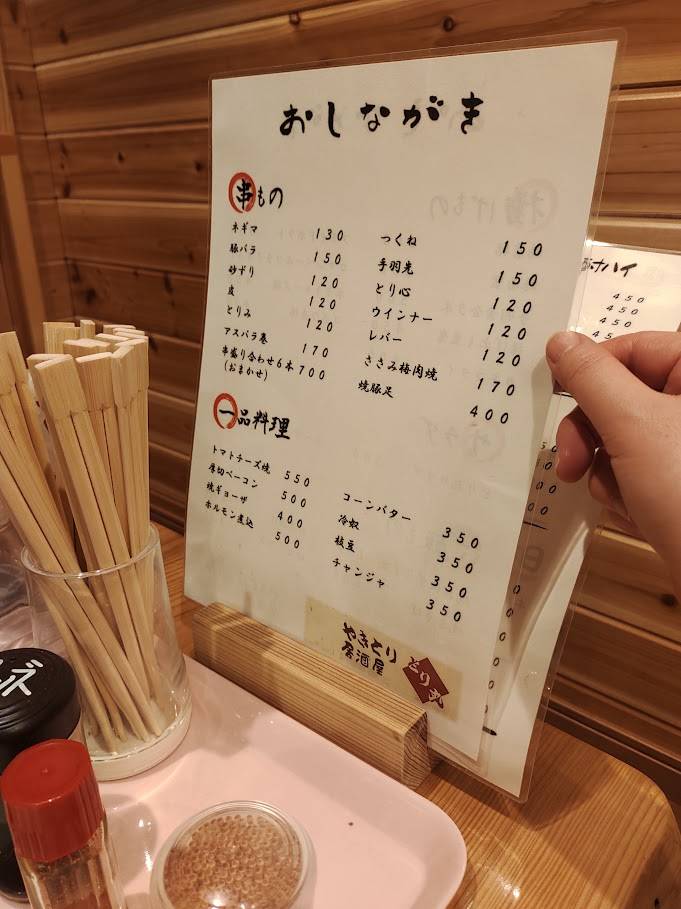 おしながき
串もの
ネギマ 130
豚バラ 150
砂ずり 120
皮 120
とりみ 120
アスパラ巻 170
串盛り合わせ6本 700
(おまかせ)
つくね 150
手羽先 150
とり心 120
ウインナー 120
レバー 120
ささみ梅肉焼 170
焼豚足 400
一品料理
トマトチーズ焼 550
厚切ベーコン 500
焼ギョーザ 400
ホルモン煮込 500
コーンバター 350
冷奴 350
枝豆 350
チャンジャ 350
やきとり
居酒屋
ハイ
450
450
450